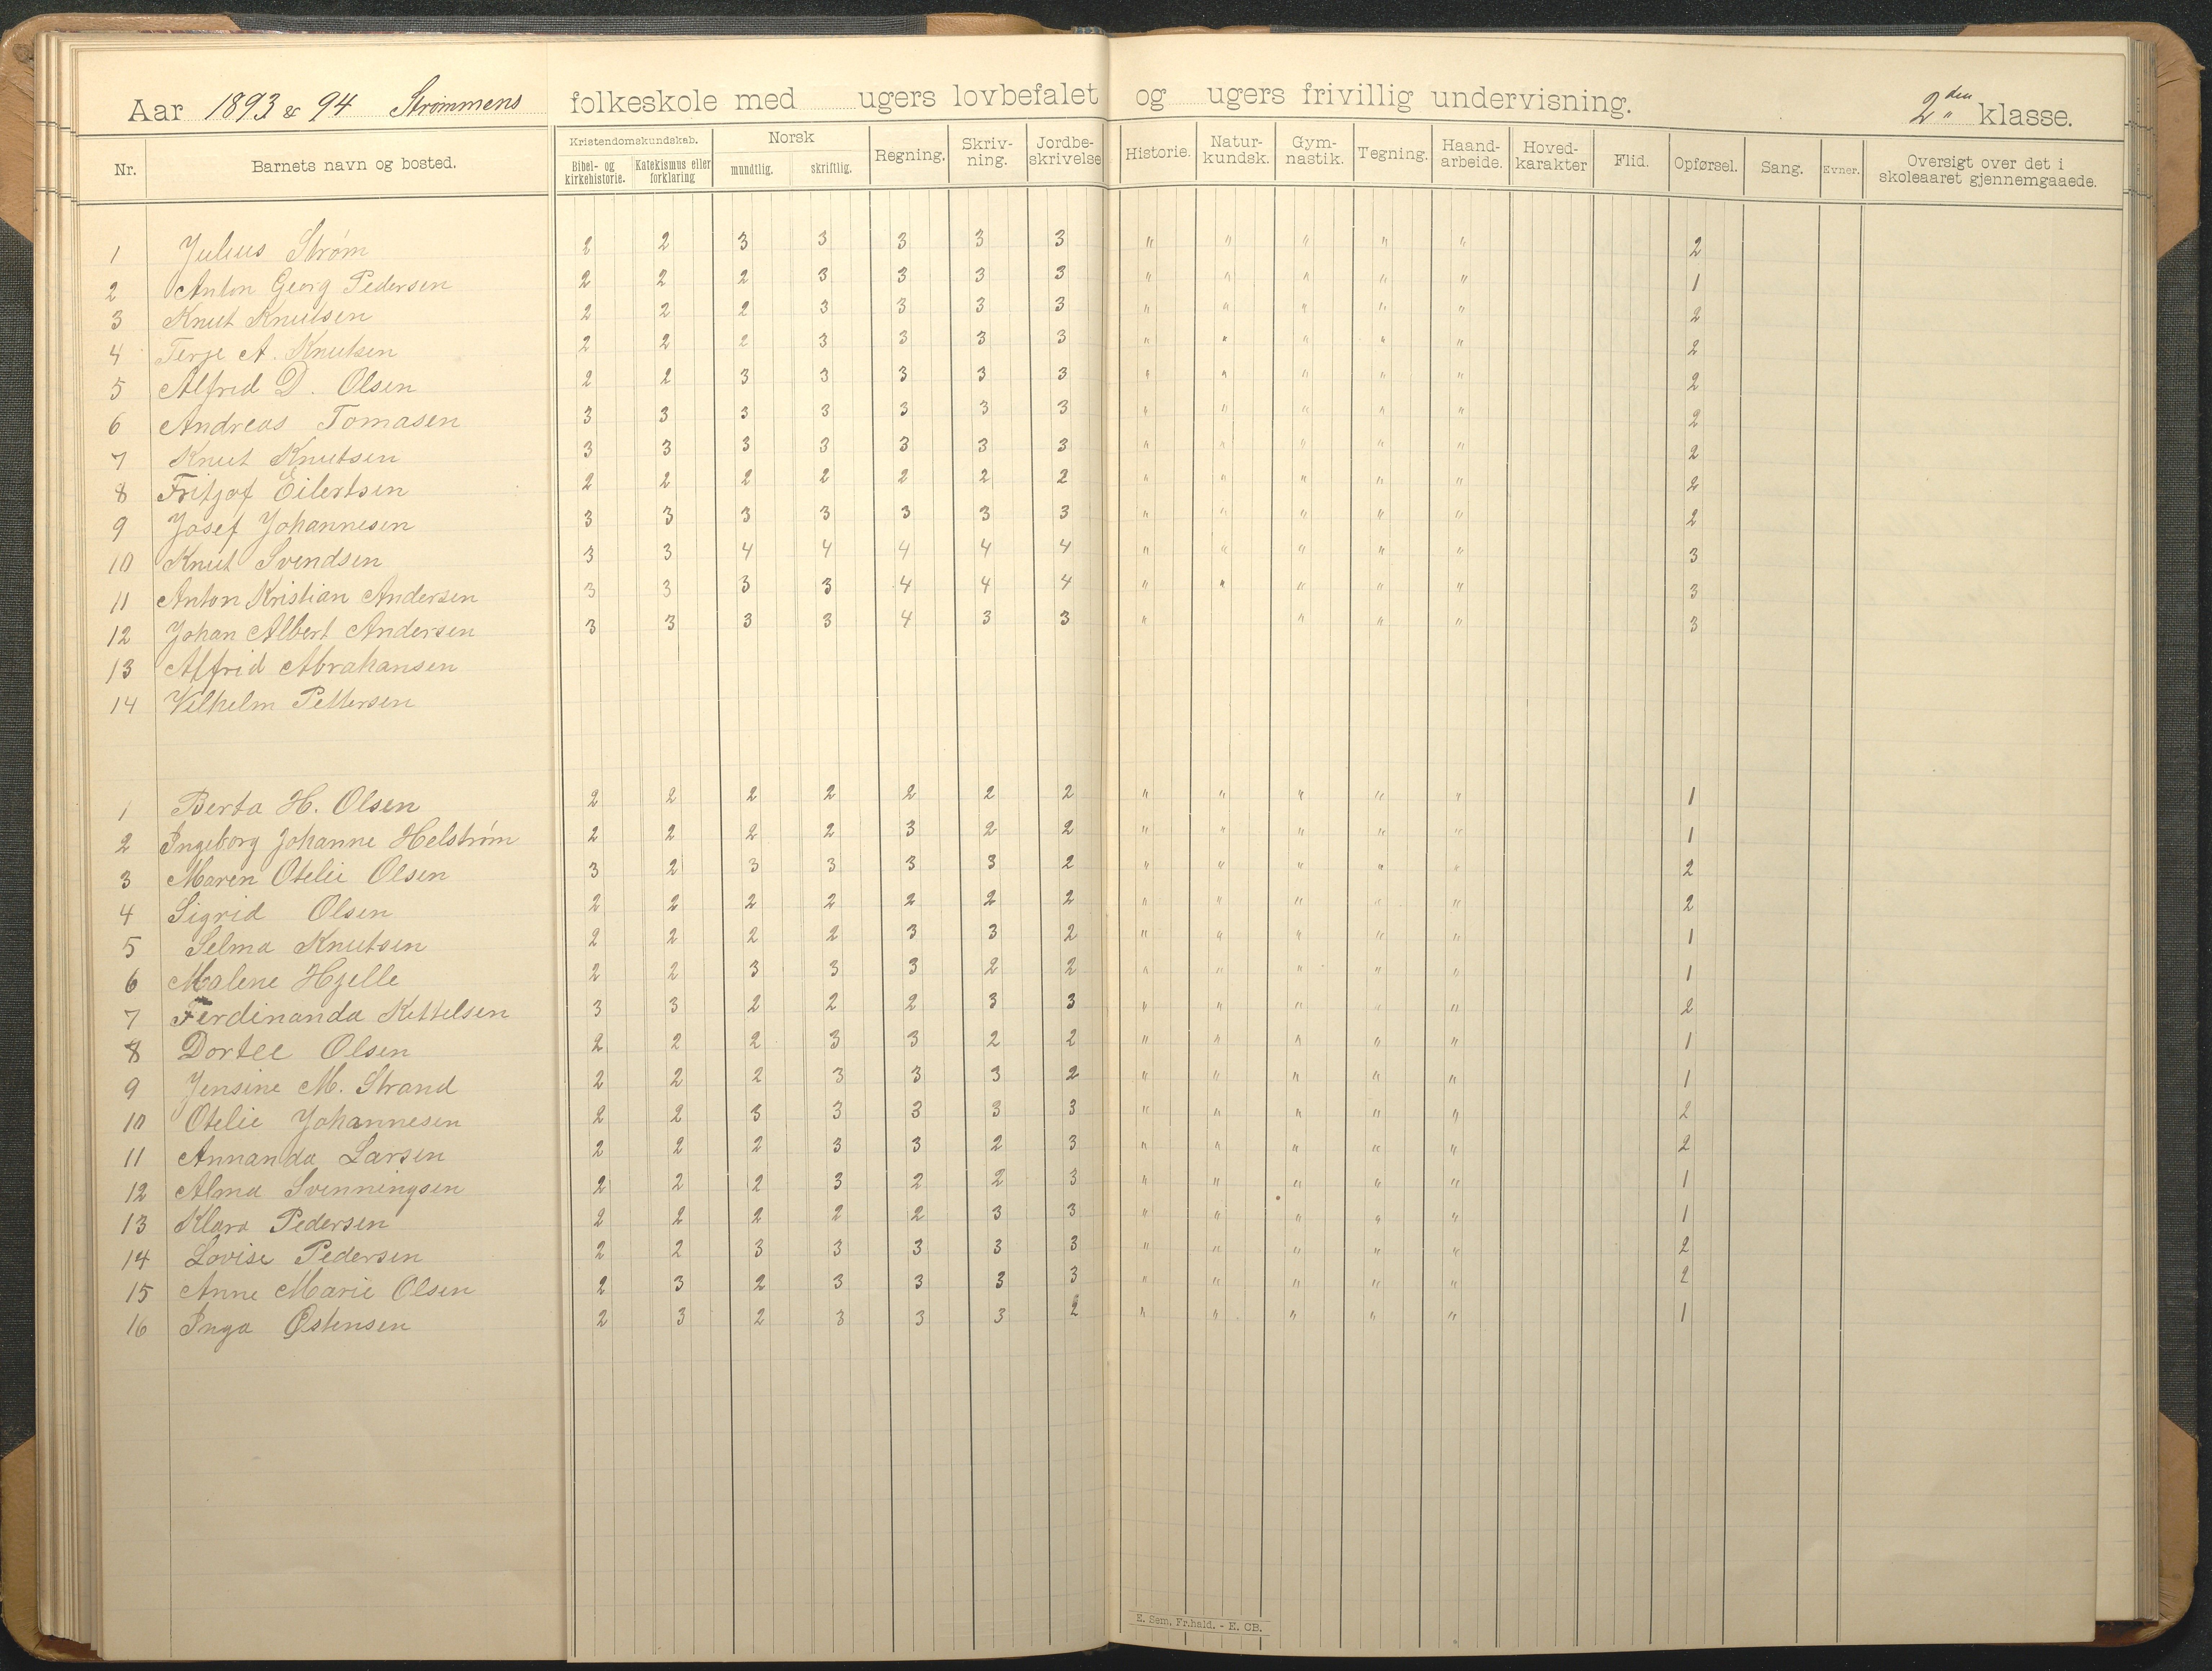 Aar 1893 & 94 Strømmens folkeskole med ugers lovbefalet og ugers frivillig undervisning. 2den klasse.
Nr. Barnets navn og bosted. Kristendomskundskab. Bibel- og kirkehistorie. Katekismus eller forklaring Norsk mundtlig. skriftlig. Regning. Skriv-ning. Jordbe-skrivelse Historie. Natur-kundsk. Gym-nastik. Tegning. Haand-arbeide. Hoved-karakter Flid. Opførsel. Sang. Evner. Oversigt over det i skoleaaret gjennemgaaede.
1 Julius Strøm 2 2 3 3 3 3 3 " " " " " 2
2 Anton Georg Pedersen 2 2 2 3 3 3 3 " " " " " 1
3 Knut Knutsen 2 2 2 3 3 3 3 " " " " " 2
4 Terje A. Knutsen 2 2 2 3 3 3 3 " " " " " 2
5 Alfrid D. Olsen 2 2 3 3 3 3 3 " " " " " 2
6 Andreas Tomasen 3 3 3 3 3 3 3 " " " " " 2
7 Knut Knutsen 3 3 3 3 3 3 3 " " " " " 2
8 Fritjof Eilertsen 2 2 2 2 2 2 2 " " " " " 2
9 Josef Johannesen 3 3 3 3 3 3 3 " " " " " 2
10 Knut Svendsen 3 3 4 4 4 4 4 " " " " " 3
11 Anton Kristian Andersen 3 3 3 3 4 4 4 " " " " " 3
12 Johan Albert Andersen 3 3 3 3 4 3 3 " " " " 3
13 Alfrid Abrahansen
14 Vilhelm Pettersen
1 Berta H. Olsen 2 2 2 2 2 2 2 " " " " " 1
2 Ingeborg Johanne Helstrøm 2 2 2 2 3 2 2 " " " " " 1
3 Maren Otelie Olsen 3 2 3 3 3 3 2 " " " " " 2
4 Sigrid Olsen 2 2 2 2 2 2 2 " " " " " 2
5 Selma Knutsen 2 2 2 2 3 3 2 " " " " " 1
6 Malene Hjelle 2 2 3 3 3 2 2 " " " " " 1
7 Ferdinanda Kettelsen 3 3 2 2 2 3 3 " " " " " 2
8 Dortee Olsen 2 2 2 3 3 2 2 " " " " " 1
9 Jensine M. Strand 2 2 2 3 3 3 2 " " " " " 1
10 Otelie Johannesen 2 2 3 3 3 3 3 " " " " " 2
11 Annanda Larsen 2 2 2 3 3 2 3 " " " " " 2
12 Alma Svenningsen 2 2 2 3 2 2 3 " " " " " 1
13 Klara Pedersen 2 2 2 2 2 3 3 " " " " " 1
14 Lovise Pedersen 2 2 3 3 3 3 3 " " " " " 2
15 Anne Marie Olsen 2 3 2 3 3 3 3 " " " " " 2
16 Inga Østensen 2 3 2 3 3 3 2 " " " " " 1
E. Sem, Fr.hald. - E. CB.